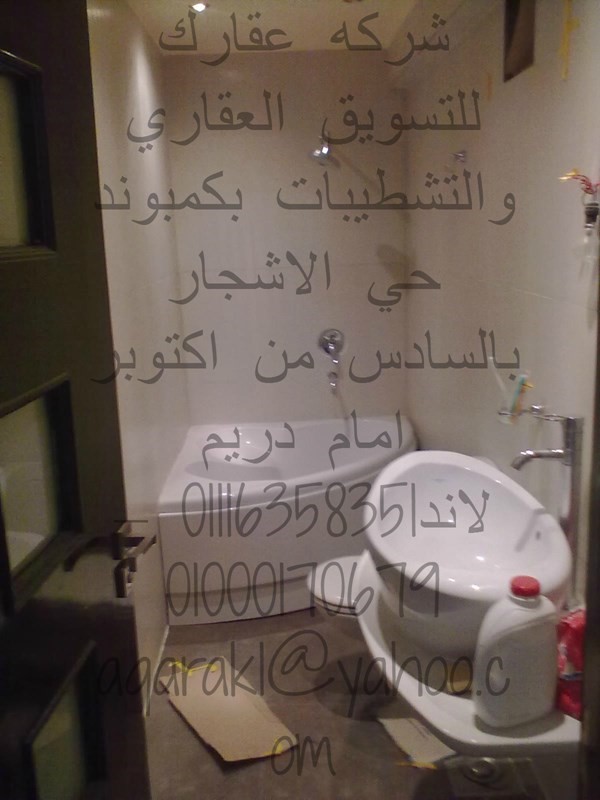 شركه عقارك
للتسويق العقاري
والتشطيبات بكمبوند
حي الاشجار
بالسادس من اكتوبر
امام دريم
لاند|0111635835 _
01000170679
aqarakl@yahoo.c
om